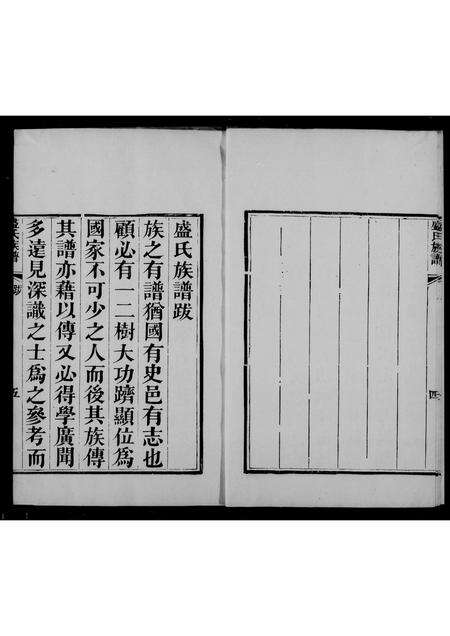 盛氏族譜
四
盛氏族譜跋
族之有譜猶國有史邑有志也
顧必有一二樹大功躋顯位為
國家不可少之人而後其族傳
其譜亦藉以傳又必得學廣聞
多達見深識之士為之參考而
盛氏族譜
五